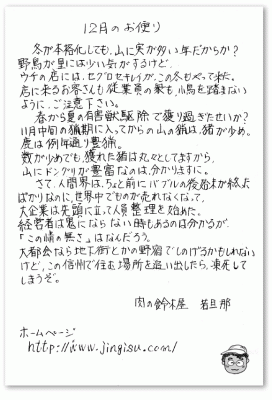 12月のお便り
冬が本格化しても、山に実が多い年だからか?
野鳥が里には少い気がするけど、
ウチの店には、セグロセキレイが、この冬もやって来た。
店に来るお客さんも従業員の輩も、小鳥を踏まない
ように、ご注意下さい。
春から夏の有害獣駆除で獲り過ぎたせいか?
11月中旬の猟期に入ってからの山の猟は、猪が少め。
鹿は例年通り豊猟。
数が少めでも、獲れた猪は丸々としてますから、
山にドングリが豊富なのは、分かりますに。
さて、人間界は、ちょと前にバブルの後始末が終よ
ばかりなのに、世界中でものが売れなくなって、
大企業は先頭に立って人員整理を始めた。
経営者は鬼にならない時もあるのは分かるが、
「この情の無さ」はなんだろう。
大都会なら地下街とかの野宿でしのげるかもしれない
けど、この信州で住む場所を追い出したら、凍死して
しまうぞ。
肉の鈴木屋 若旦那
ホームページ
http://www.jingisu.com/